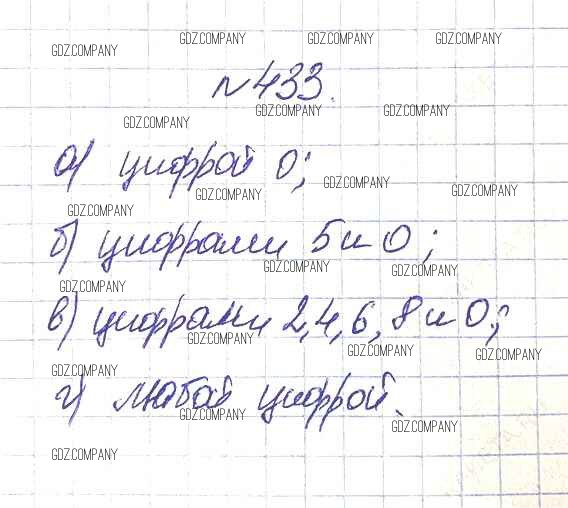 GDZ.COMPANY GDZ.COMPANY GDZ.COMPANY GDZ.COMPANY
№433.
GDZ.COMPANY GDZ.COMPANY GDZ.COMPANY
а) цифрой 0;
GDZ.COMPANY GDZ.COMPANY GDZ.COMPANY
GDZ.COMPANY
б) цифрами 5 и 0;
GDZ.COMPANY GDZ.COMPANY
GDZ.COMPANY
в) цифрами 2,4,6,8 и 0;
GDZ.COMPANY GDZ.COMPANY GDZ.COMPANY
GDZ.COMPANY
г) любой цифрой.
GDZ.COMPANY GDZ.COMPANY
GDZ.COMPANY